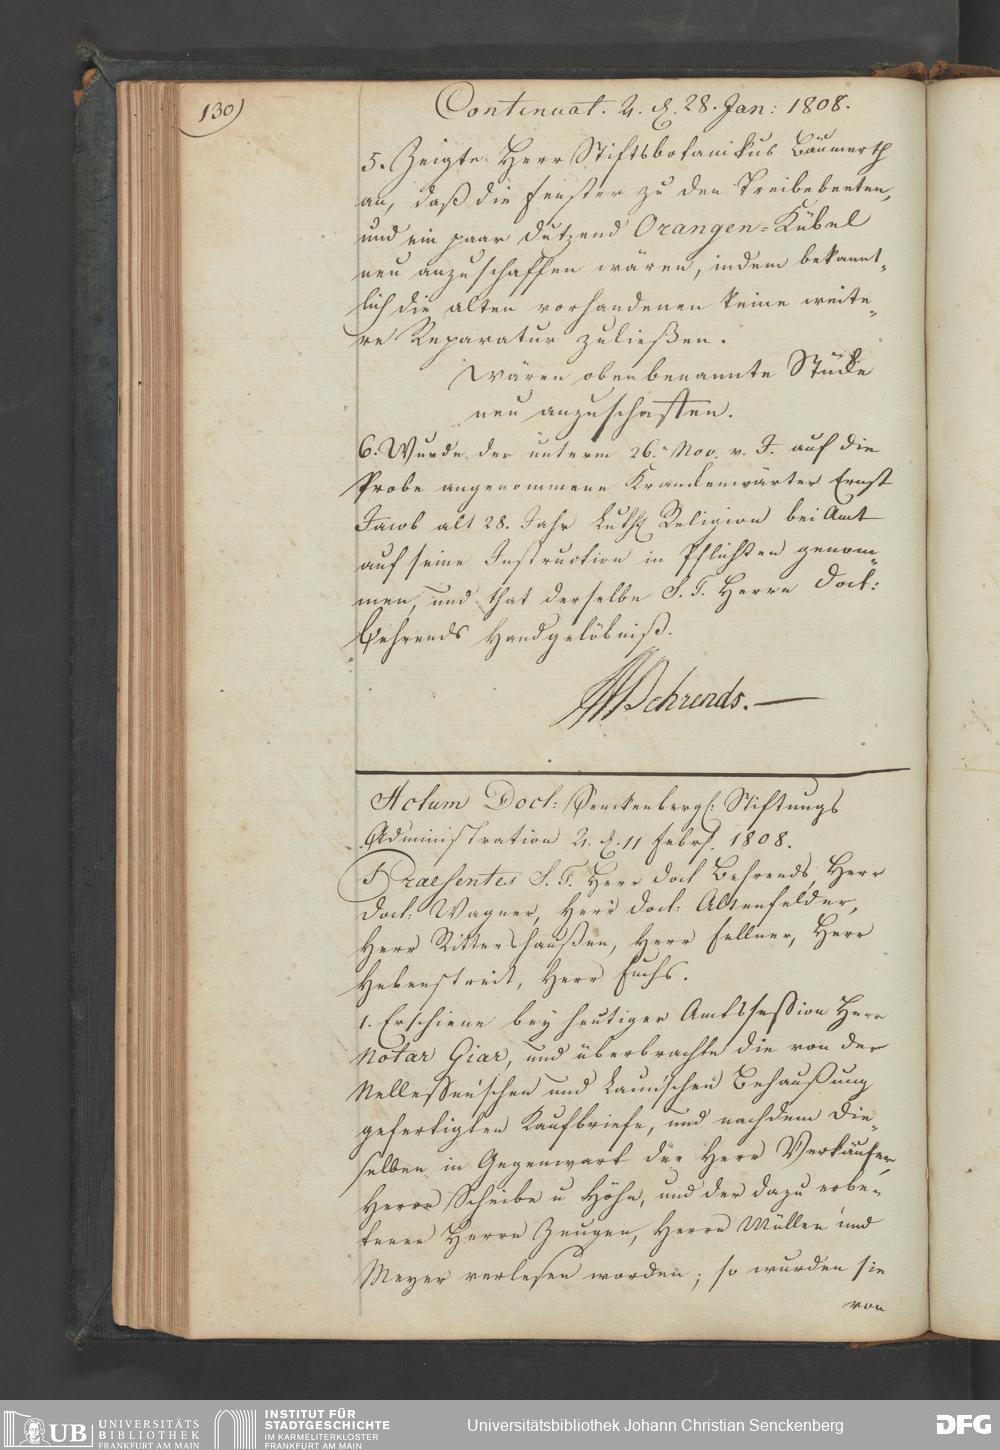 130)
Continuat. 4. d. 28. Jan: 1808.
5. Zeigte Herr Stiftsbotanikus Bäumerth
an, daß die Fenster zu den Treibebeeten,
und ein paar Dutzend Orangen-Kübel
neu anzuschaffen wären, indem bekannt-
lich die alten vorhandenen keine weite-
re Reparatur zuließen.
Wären obenbenannte Stücke
neu anzuschaffen.
6. Wurde der unterm 26. Nov. v. J. auf die
Probe angenommene Krankenwärter Ernst
Jacob alt 28. Jahr Luth. Religion bei Amt
auf seine Instruction in Pflichten genom-
men, und that derselbe S. T. Herrn Doct:
Behrends Handgelöbniß.
Behrends.
Actum Doct: Senckenbergl: Stiftungs
Administration 4. d. 11 Febr. 1808.
Praesentes S. T. Herr Doct Behrends, Herr
Doct: Wagner, Herr Doct: Altenfelder,
Herr Rittershaußen, Herr Fellner, Herr
Hebenstreit, Herr Fuchs.
1. Erschiene bey heutiger Amtssession Herr
Notar Giar, und überbrachte die von der
Nellessen'schen und Behaußung
gefertigten Kaufbriefe, und nachdem die-
selben in Gegenwart der Herr Verkäufer,
Herrn Scheibe u Höhn, und der dazu erbe-
tenen Herrn Zeugen, Herrn Müllen und
Meyer verlesen worden; so wurden sie
von
UB UNIVERSITÄTS
BIBLIOTHEK
FRANKFURT AM MAIN
INSTITUT FÜR
STADTGESCHICHTE
IM KARMELITERKLOSTER
FRANKFURT AM MAIN
Universitätsbibliothek Johann Christian Senckenberg
DFG